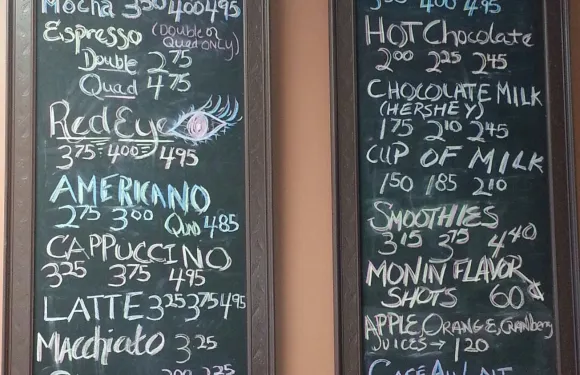 Mocha 3.50 4.00 4.95
Espresso (Double or
Quad ONLY)
Double 2.75
Quad 4.75
Red Eye
3.75 4.00 4.95
AMERICANO
2.75 3.00 Quad 4.85
CAPPUCCINO
3.25 3.75 4.95
LATTE 3.25 3.75 4.95
Macchiato 3.25
4.00 4.95
HOT Chocolate
2.00 2.25 2.45
CHOCOLATE MILK
(HERSHEY)
1.75 2.10 2.45
CUP OF MILK
1.50 1.85 2.10
SMOOTHIES
3.15 3.75 4.40
MONIN FLAVOR
SHOTS 60¢
APPLE, ORANGE, Cranberry
JUICES → 1.20
CAFE AU LAIT